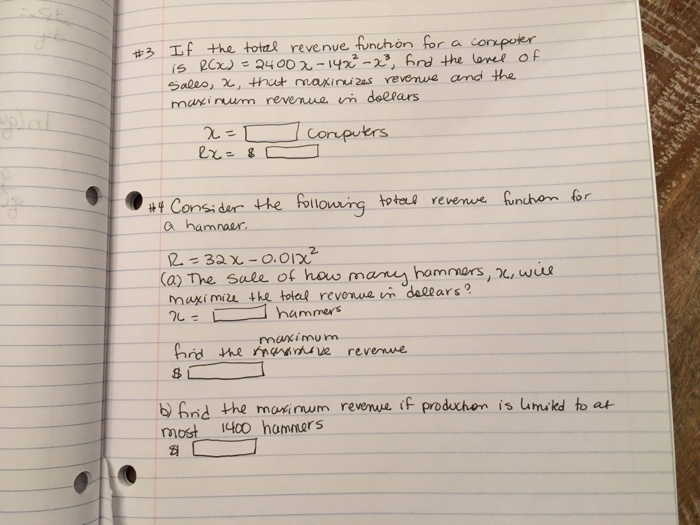 #3 If the total revenue function for a computer
is R(x) = 2400x - 14x² - x³, find the level of
sales, x, that maximizes revenue and the
maximum revenue in dollars
x = computers
Rx = $
#4 Consider the following total revenue function for
a hammer.
R = 32x - 0.01x²
(a) The sale of how many hammers, x, will
maximize the total revenue in dollars?
x = hammers
maximum
find the revenue
$
b) find the maximum revenue if production is limited to at
most 1400 hammers
$